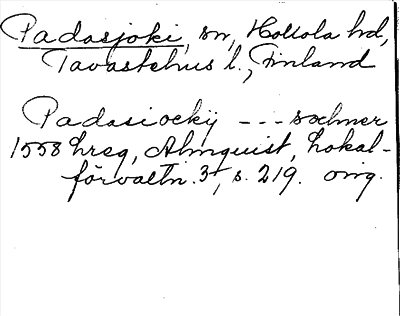 Padasjoki, sn, Hollola hd,
Tavastehus l., Finland
Padasiockÿ --- sochner
1558 hreg, Almquist, Lokal-
förvaltn. 3, s. 219. omg.